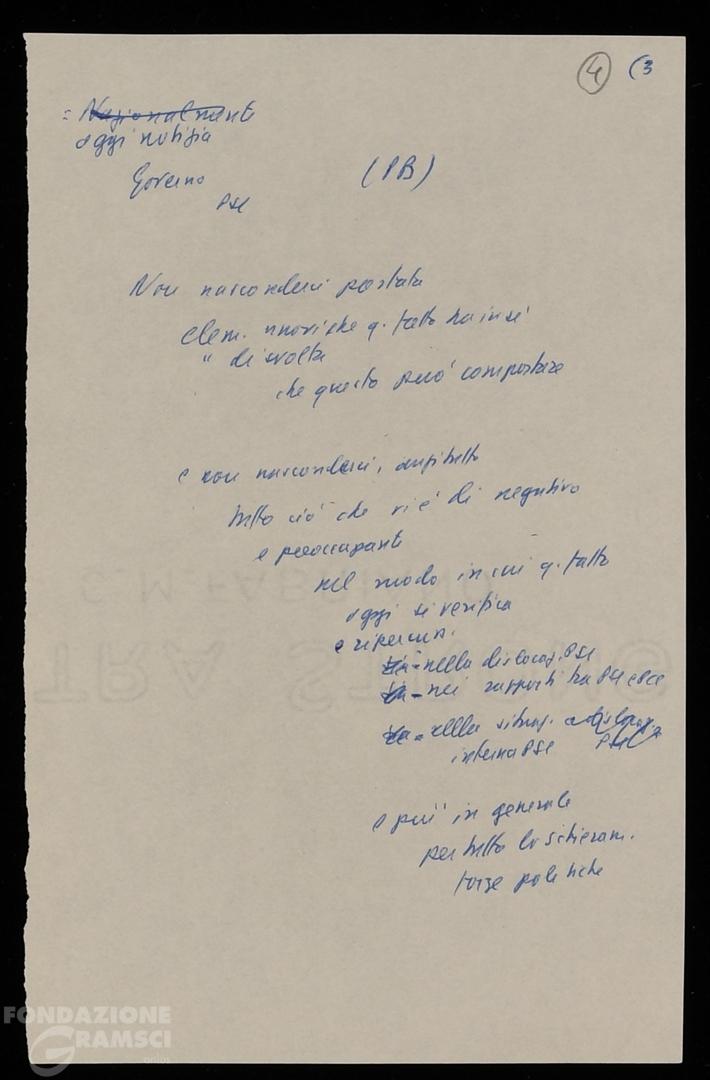 4 (3
= Nazionalmente
oggi notizia
Governo (PB)
PSI
Non nasconderci portata
elem. nuovi che q. fatto ha in sé
" di svolta
che questo può comportare
e non nasconderci, anzitutto
tutto ciò che vi è di negativo
e preoccupante
nel modo in cui q. fatto
oggi si verifica
e ripercuss.
- nella dislocaz. PSI
- nei rapporti tra PSI e PCI
- nella situaz.
interna PSI PSI
e più in generale
per tutto lo schieram.
forze politiche
FONDAZIONE
GRAMSCI
onlus